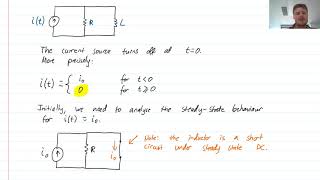 i(t) R L
The current source turns off at t=0.
More precisely:
i(t) = { i₀ for t<0
0 for t≥0
Initially, we need to analyse the steady-state behaviour
for i(t) = i₀.
i₀ R i₀
Note: the inductor is a short
circuit under steady state DC.